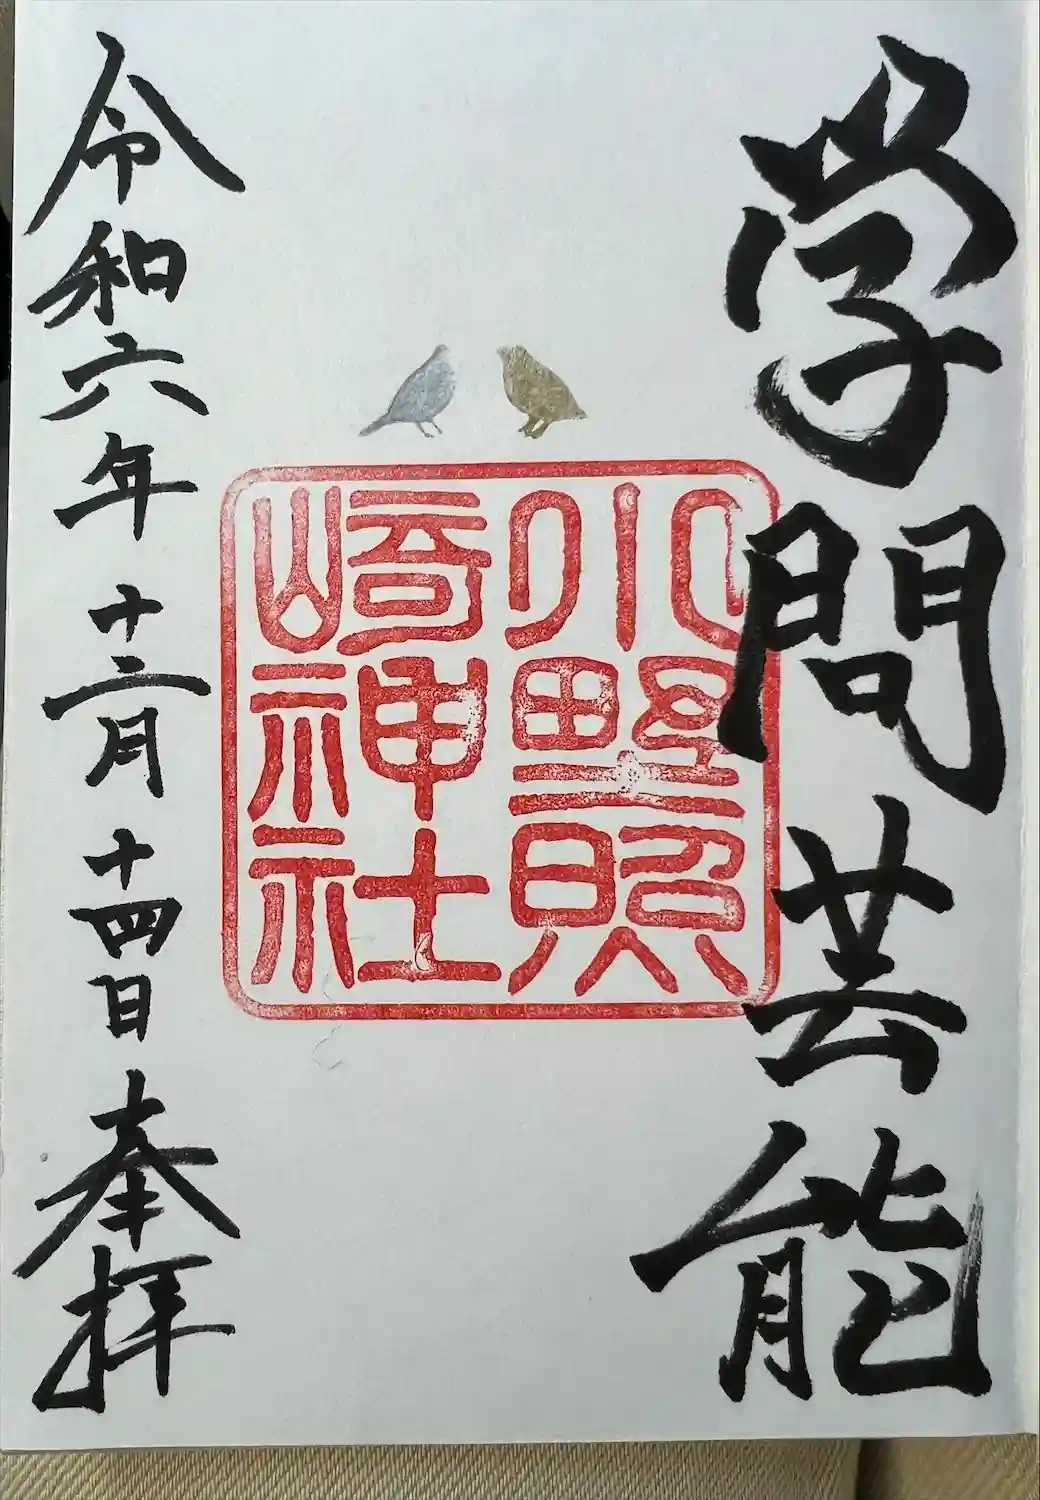 学問芸能
小野照
崎神社
令和六年十二月十四日奉拝